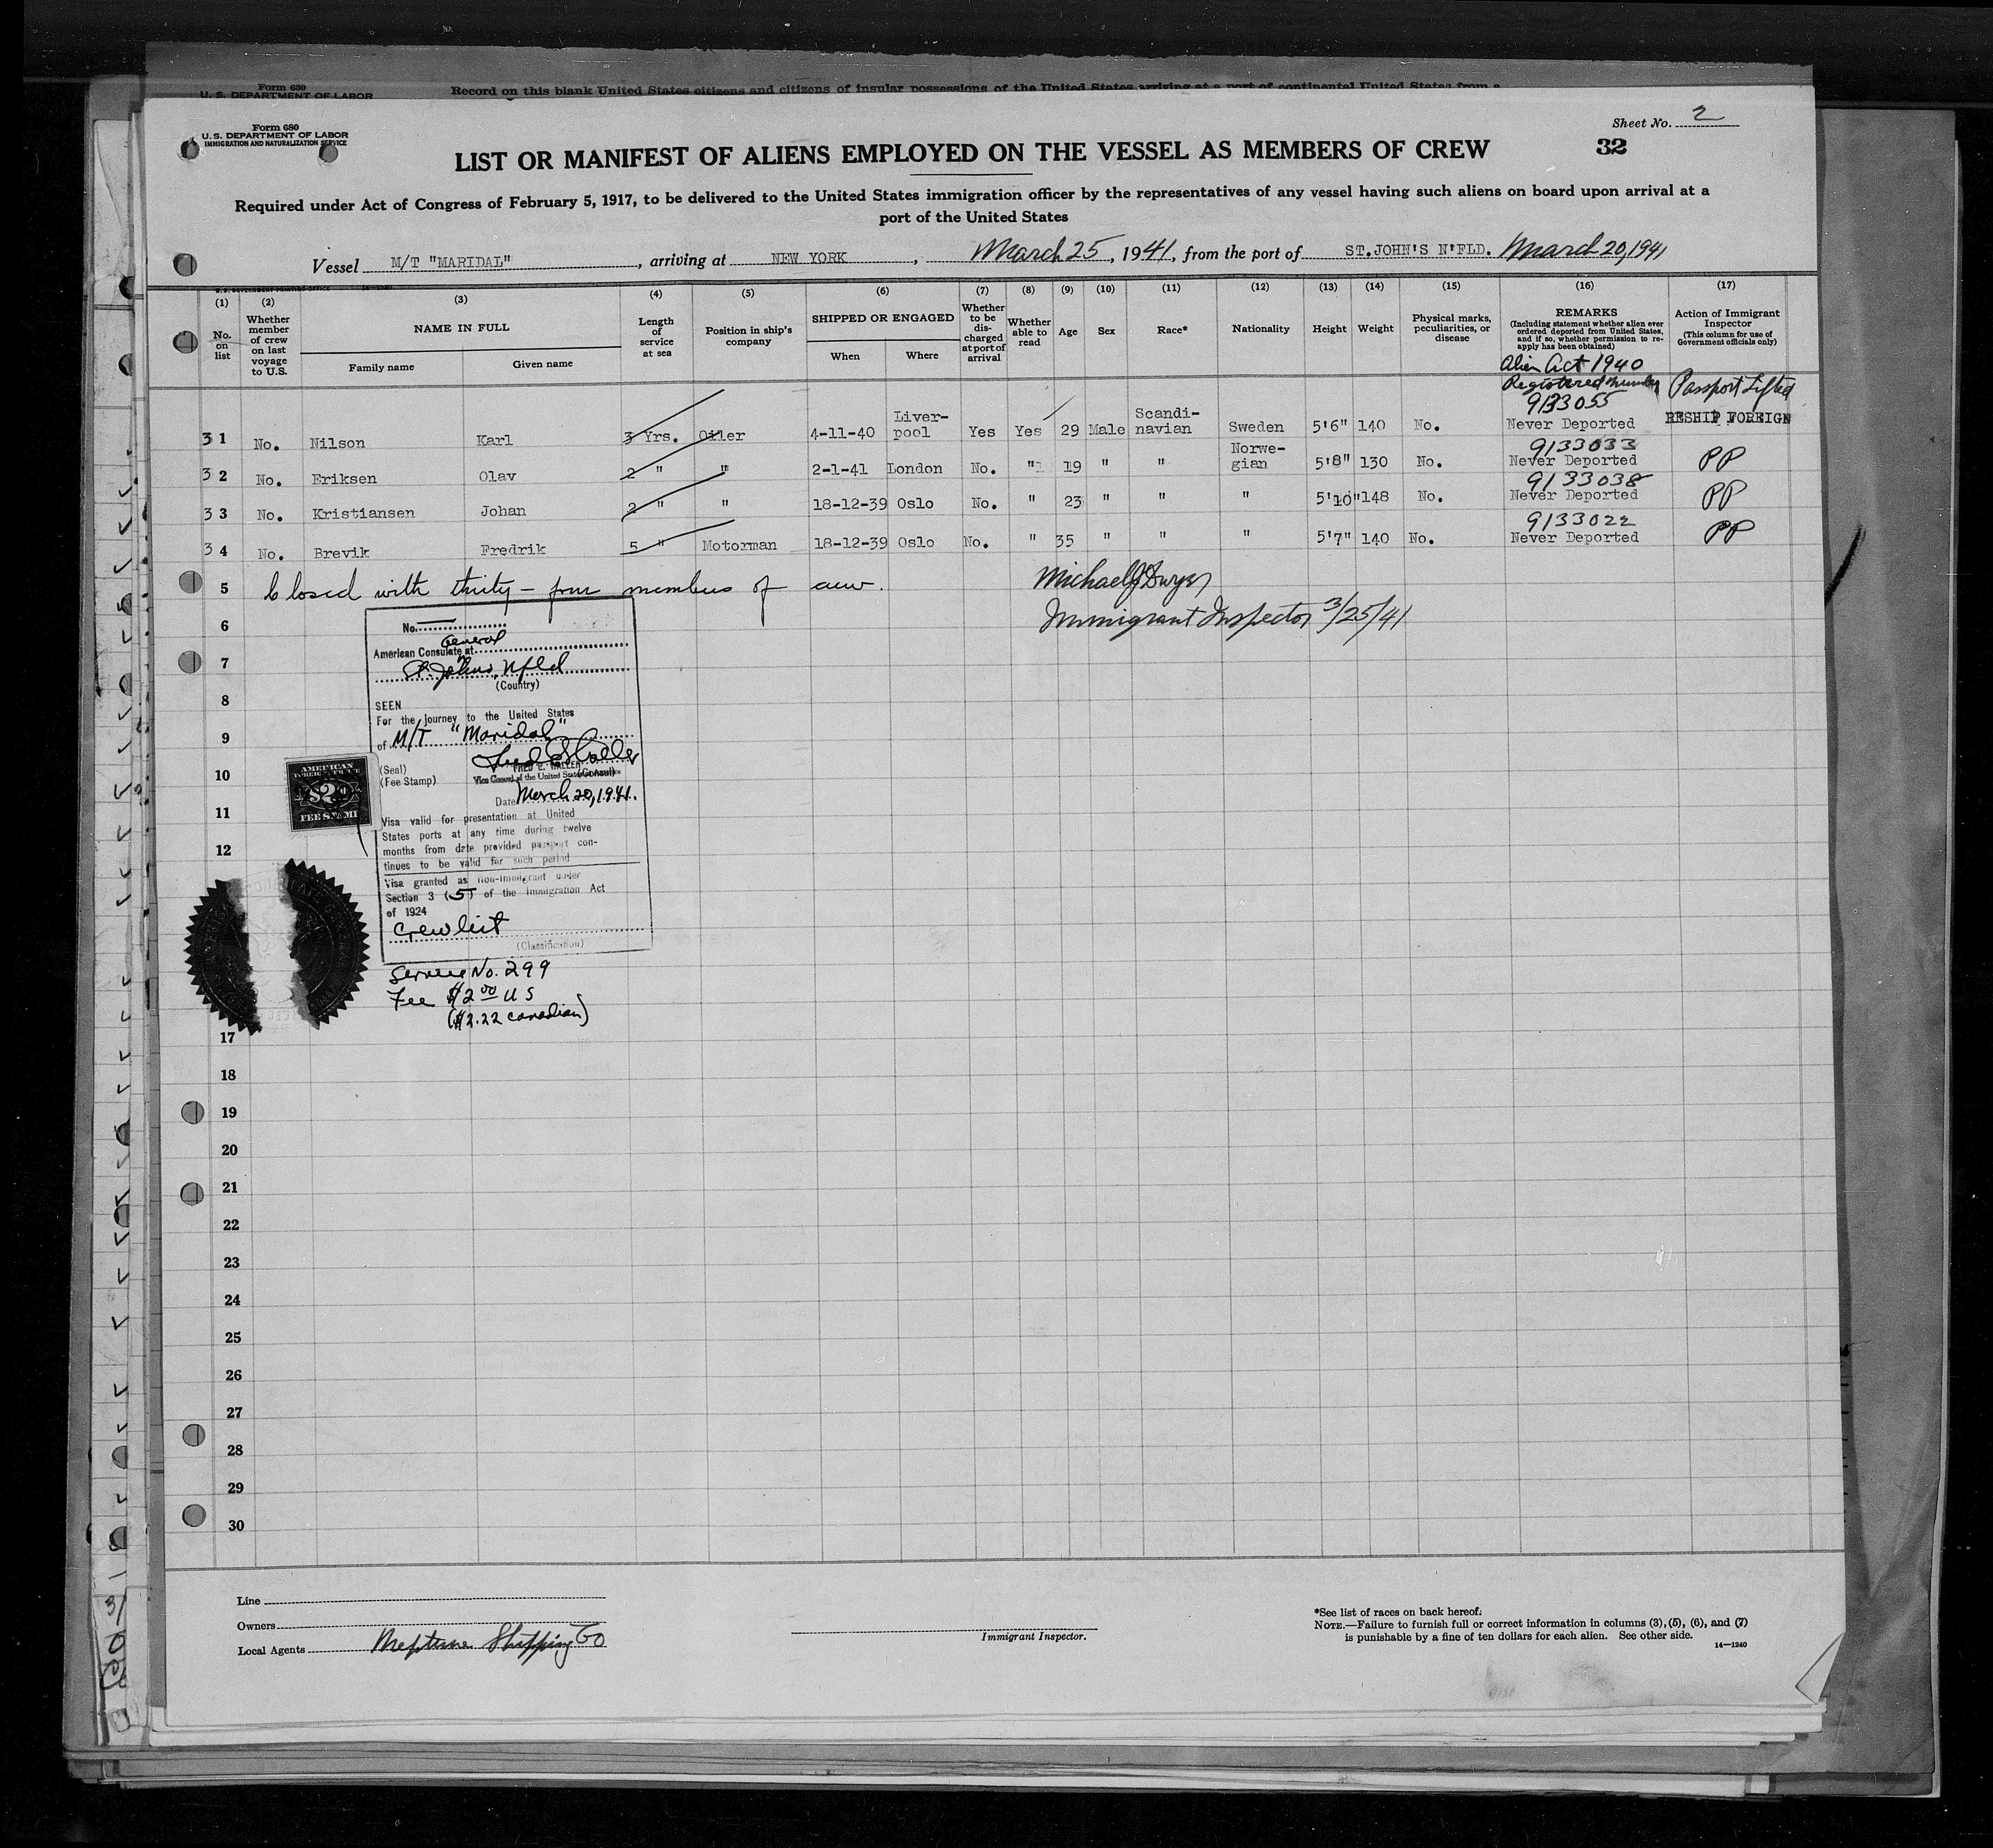 Form 680
U. S. DEPARTMENT OF LABOR
Record on this blank United States citizens and citizens of insular possessions of the United States arriving at a port of continental United States from a
Form 680
U. S. DEPARTMENT OF LABOR
IMMIGRATION AND NATURALIZATION SERVICE
Sheet No. 2
LIST OR MANIFEST OF ALIENS EMPLOYED ON THE VESSEL AS MEMBERS OF CREW
32
Required under Act of Congress of February 5, 1917, to be delivered to the United States immigration officer by the representatives of any vessel having such aliens on board upon arrival at a
port of the United States
Vessel M/T "MARIDAL", arriving at NEW YORK, March 25, 1941, from the port of ST.JOHN'S N'FLD. March 20, 1941
(1) No. on list
(2) Whether member of crew on last voyage to U.S.
(3) NAME IN FULL Family name Given name
(4) Length of service at sea
(5) Position in ship's company
(6) SHIPPED OR ENGAGED When Where
(7) Whether to be discharged at port of arrival
(8) Whether able to read
(9) Age
(10) Sex
(11) Race*
(12) Nationality
(13) Height
(14) Weight
(15) Physical marks, peculiarities, or disease
(16) REMARKS (Including statement whether alien ever ordered deported from United States, and if so, whether permission to reapply has been obtained)
(17) Action of Immigrant Inspector (This column for use of Government officials only)
Alien Act 1940
Registered Number
Passport Lifted
31 No. Nilson Karl 3 Yrs. Oiler 4-11-40 Liver-pool Yes Yes 29 Male Scandi-navian Sweden 5'6" 140 No. 9133055 Never Deported RESHIP FOREIGN
32 No. Eriksen Olav 2 " " 2-1-41 London No. " 19 " " Norwe-gian 5'8" 130 No. 9133033 Never Deported PP
33 No. Kristiansen Johan 2 " " 18-12-39 Oslo No. " 23 " " " 5'10" 148 No. 9133038 Never Deported PP
34 No. Brevik Fredrik 5 " Motorman 18-12-39 Oslo No. " 35 " " " 5'7" 140 No. 9133022 Never Deported PP
5 Closed with thirty-four members of crew. Michael J Dwyer
6 Immigrant Inspector 3/25/41
7
8
9
10
11
12
No.
General
American Consulate at
St. Johns, Nfld
(Country)
SEEN
For the journey to the United States
of M/T "Maridal"
(Seal)
(Fee Stamp)
FRED E. WALLER
Vice Consul of the United States of America
(Consul)
Date March 20, 1941.
Visa valid for presentation at United
States ports at any time during twelve
months from date provided passport con-
tinues to be valid for such period
Visa granted as non-immigrant under
Section 3 (5) of the Immigration Act
of 1924
Crew list
(Classification)
AMERICAN
$2
FEE STAMP
Service No. 299
Fee $2.00 US
($2.22 Canadian)
17
18
19
20
21
22
23
24
25
26
27
28
29
30
Line
Owners
Local Agents Neptune Shipping Co
Immigrant Inspector.
*See list of races on back hereof.
NOTE.—Failure to furnish full or correct information in columns (3), (5), (6), and (7)
is punishable by a fine of ten dollars for each alien. See other side.
14—1240